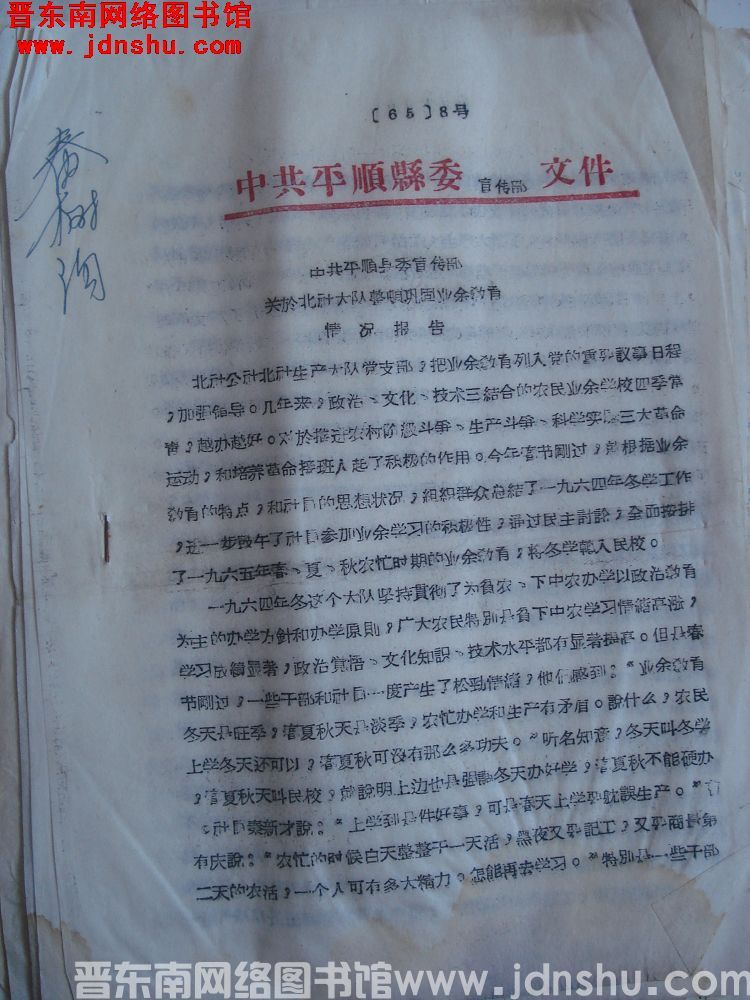 晋东南网络图书馆
www.jdnshu.com
〔65〕8号
中共平順縣委宣传部文件
中共平順县委宣传部
关於北社大队整頓巩固业余教育
情况报告
北社公社北社生产大队党支部，把业余教育列入党的重要議事日程
，加强领导。几年来，政治、文化、技术三結合的农民业余学校四季常
青，越办越好。对於推进农村阶級斗爭、生产斗爭、科学实驗三大革命
运动，和培养革命接班人起了积极的作用。今年春节刚过，就根据业余
教育的特点，和社員的思想状况，組织群众总結了一九六四年冬学工作
，进一步鼓午了社員参加业余学习的积极性，通过民主討論，全面按排
了一九六五年春、夏、秋农忙时期的业余教育，将冬学轉入民校。
一九六四年冬这个大队坚持貫彻了为貧农、下中农办学以政治教育
为主的办学方針和办学原則，广大农民特别是貧下中农学习情緒高漲，
学习成績显著，政治覚悟、文化知識、技术水平都有显著提高。但是春
节刚过，一些干部和社員一度产生了松劲情緒，他們感到：“业余教育
冬天是旺季，春夏秋天是淡季，农忙办学和生产有矛盾。說什么，农民
上学冬天还可以，春夏秋可没有那么多功夫。“听名知意，冬天叫冬学
，春夏秋天叫民校，就說明上边也是强調冬天办好学，春夏秋不能硬办
。社員秦新才說：“上学到是件好事，可是春天上学要躭誤生产。”
有庆說：“农忙的时候白天整整干一天活，黑夜又要記工，又要商量第
二天的农活，一个人可有多大精力。怎能再去学习。”特别是一些干部
晋东南网络图书馆www.jdnshu.com